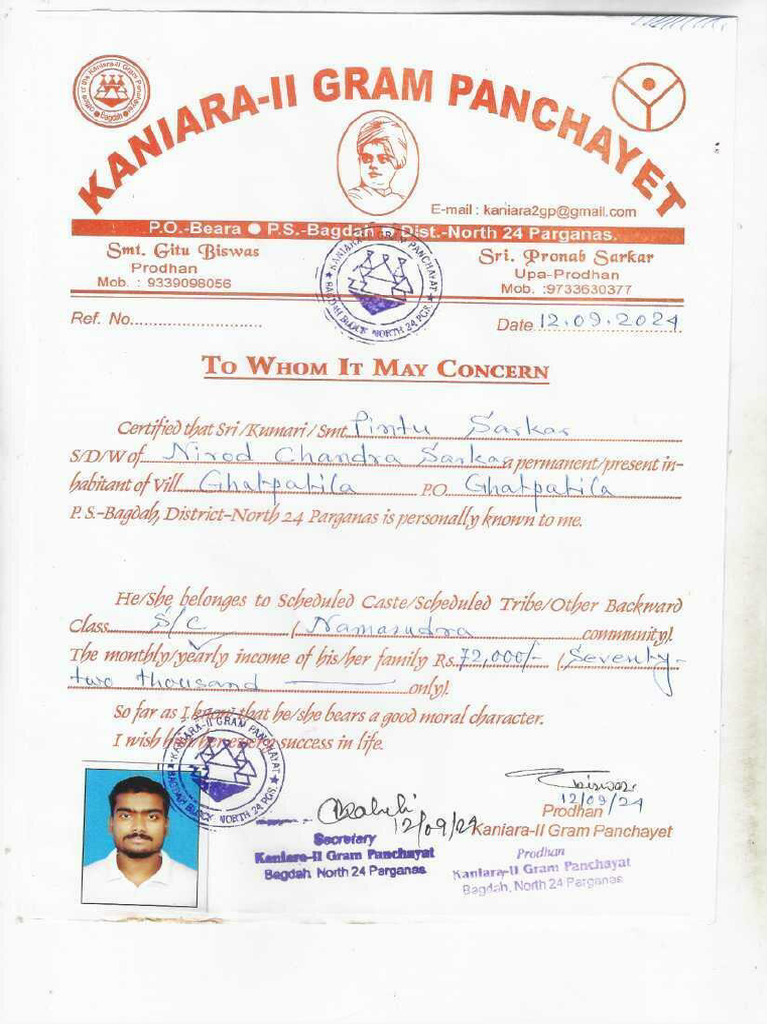 KANIARA-II GRAM PANCHAYET
Office of the Kaniara-II Gram Panchayat
Bagdah
E-mail : kaniara2gp@gmail.com
P.O.-Beara ● P.S.-Bagdah ● Dist.-North 24 Parganas.
Smt. Gitu Biswas
Prodhan
Mob. : 9339096056
Sri. Pronab Sarkar
Upa-Prodhan
Mob. :9733630377
KANIARA-II GRAM PANCHAYAT
BAGDAH BLOCK NORTH 24 PGS.
Ref. No.
Date 12.09.2024
TO WHOM IT MAY CONCERN
Certified that Sri/Kumari/Smt. Pintu Sarkar
S/D/W of Nirod Chandra Sarkar a permanent/present in-
habitant of Vill. Ghatpatila P.O. Ghatpatila
P.S.-Bagdah, District-North 24 Parganas is personally known to me.
He/She belongs to Scheduled Caste/Scheduled Tribe/Other Backward
Class S/C (Namasudra community).
The monthly/yearly income of his/her family Rs. 72,000/- (Seventy-
two thousand only).
So far as I know that he/she bears a good moral character.
I wish his/her every success in life.
KANIARA-II GRAM PANCHAYAT
BAGDAH BLOCK NORTH 24 PGS.
12/09/24
Secretary
Kaniara-II Gram Panchayat
Bagdah North 24 Parganas
Biswas
12/09/24
Prodhan
Kaniara-II Gram Panchayet
Prodhan
Kaniara-II Gram Panchayat
Bagdah, North 24 Parganas